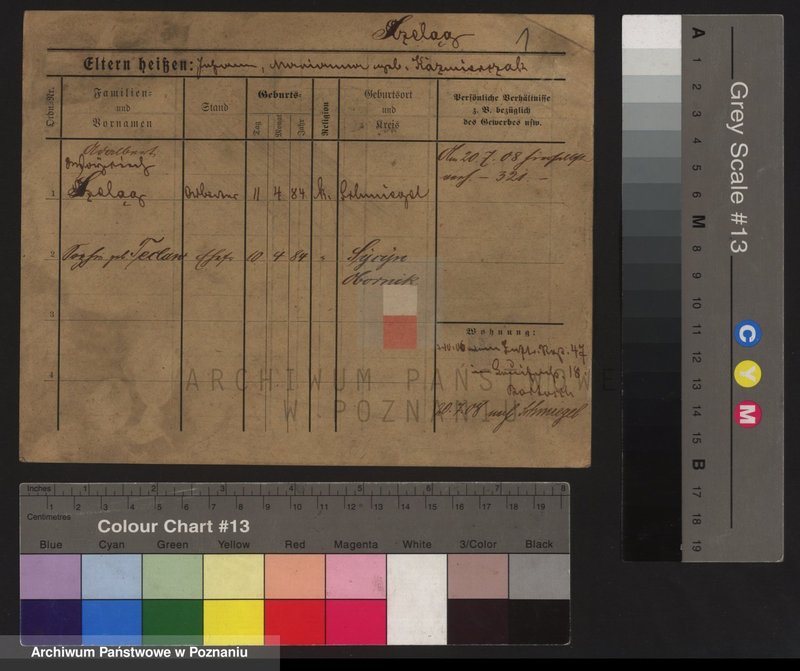 Szeląg
1
Eltern heißen: Johann, Marianna geb. Kaźmierczak
Ordn.-Nr.
Familien-
und
Vornamen
Stand
Geburts-
Tag
Monat
Jahr
Religion
Geburtsort
und
Kreis
Persönliche Verhältnisse
z. B. bezüglich
des Gewerbes usw.
Adalbert
1 Szeląg Arbeiter 11 4 84 k. Schmiegel
Am 20.7.08
verh. - 320. -
2 geb. Teclaw Ehefr 10 4 84 "
Obornik
3
4
Wohnung:
47
18
20.7.08 nach Schmiegel
ARCHIWUM PAŃSTWOWE
W POZNANIU
Grey Scale #13
A 1 2 3 4 5 6 M 8 9 10 11 12 13 14 15 B 17 18 19
C
Y
M
Inches 1 2 3 4 5 6 7 8
Centimetres 1 2 3 4 5 6 7 8 9 10 11 12 13 14 15 16 17 18 19
Colour Chart #13
Blue Cyan Green Yellow Red Magenta White 3/Color Black
Archiwum Państwowe w Poznaniu